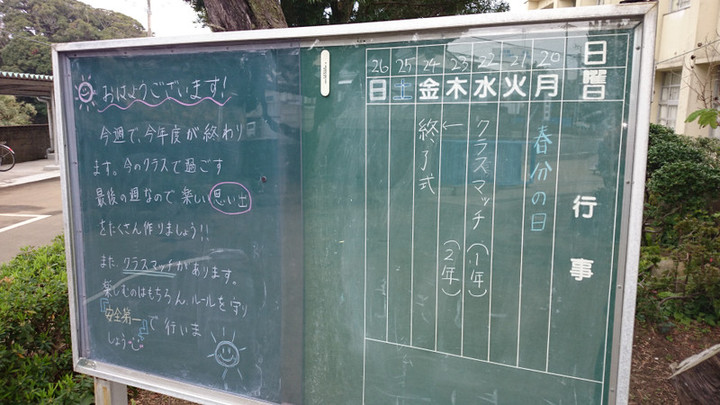 おはようございます!
今週で、今年度が終わり
ます。今のクラスで過ごす
最後の週なので楽しい思い出
をたくさん作りましょう!!
また、クラスマッチがあります。
楽しむのはもちろん、ルールを守り
『安全第一』で行いま
しょう
26 25 24 23 22 21 20 日曜
日 土 金 木 水 火 月
行事
春分の日
クラスマッチ (1年)
← (2年)
終了式